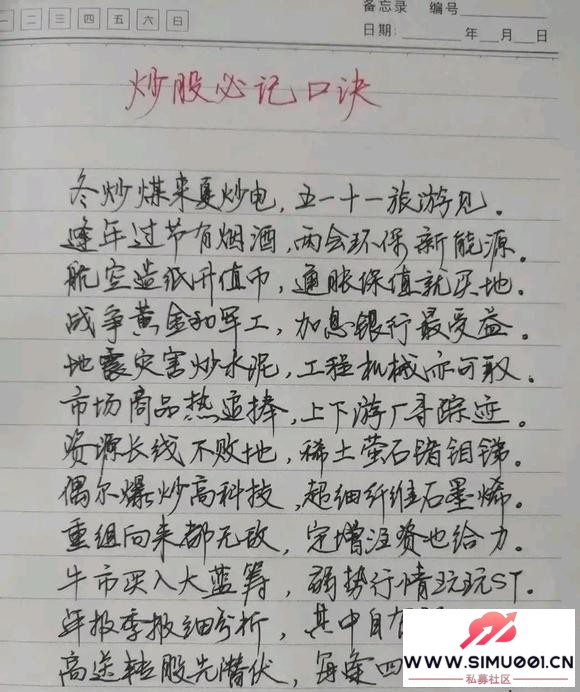 一 二 三 四 五 六 日
备忘录 编号
日期: 年 月 日
炒股必记口诀
冬炒煤来夏炒电,五一十一旅游见。
逢年过节有烟酒,两会环保新能源。
航空造纸升值币,通胀保值就买地。
战争黄金和军工,加息银行最受益。
地震灾害炒水泥,工程机械亦可取。
市场商品热追捧,上下游厂寻踪迹。
资源长线不败地,稀土萤石锗钼锑。
偶尔爆炒高科技,超细纤维石墨烯。
重组向来都无敌,定增注资也给力。
牛市买入大蓝筹,弱势行情玩玩ST.
年报季报细分析,其中自有
高送转股先潜伏,每逢四
WWW.SIMU001.CN
私募社区